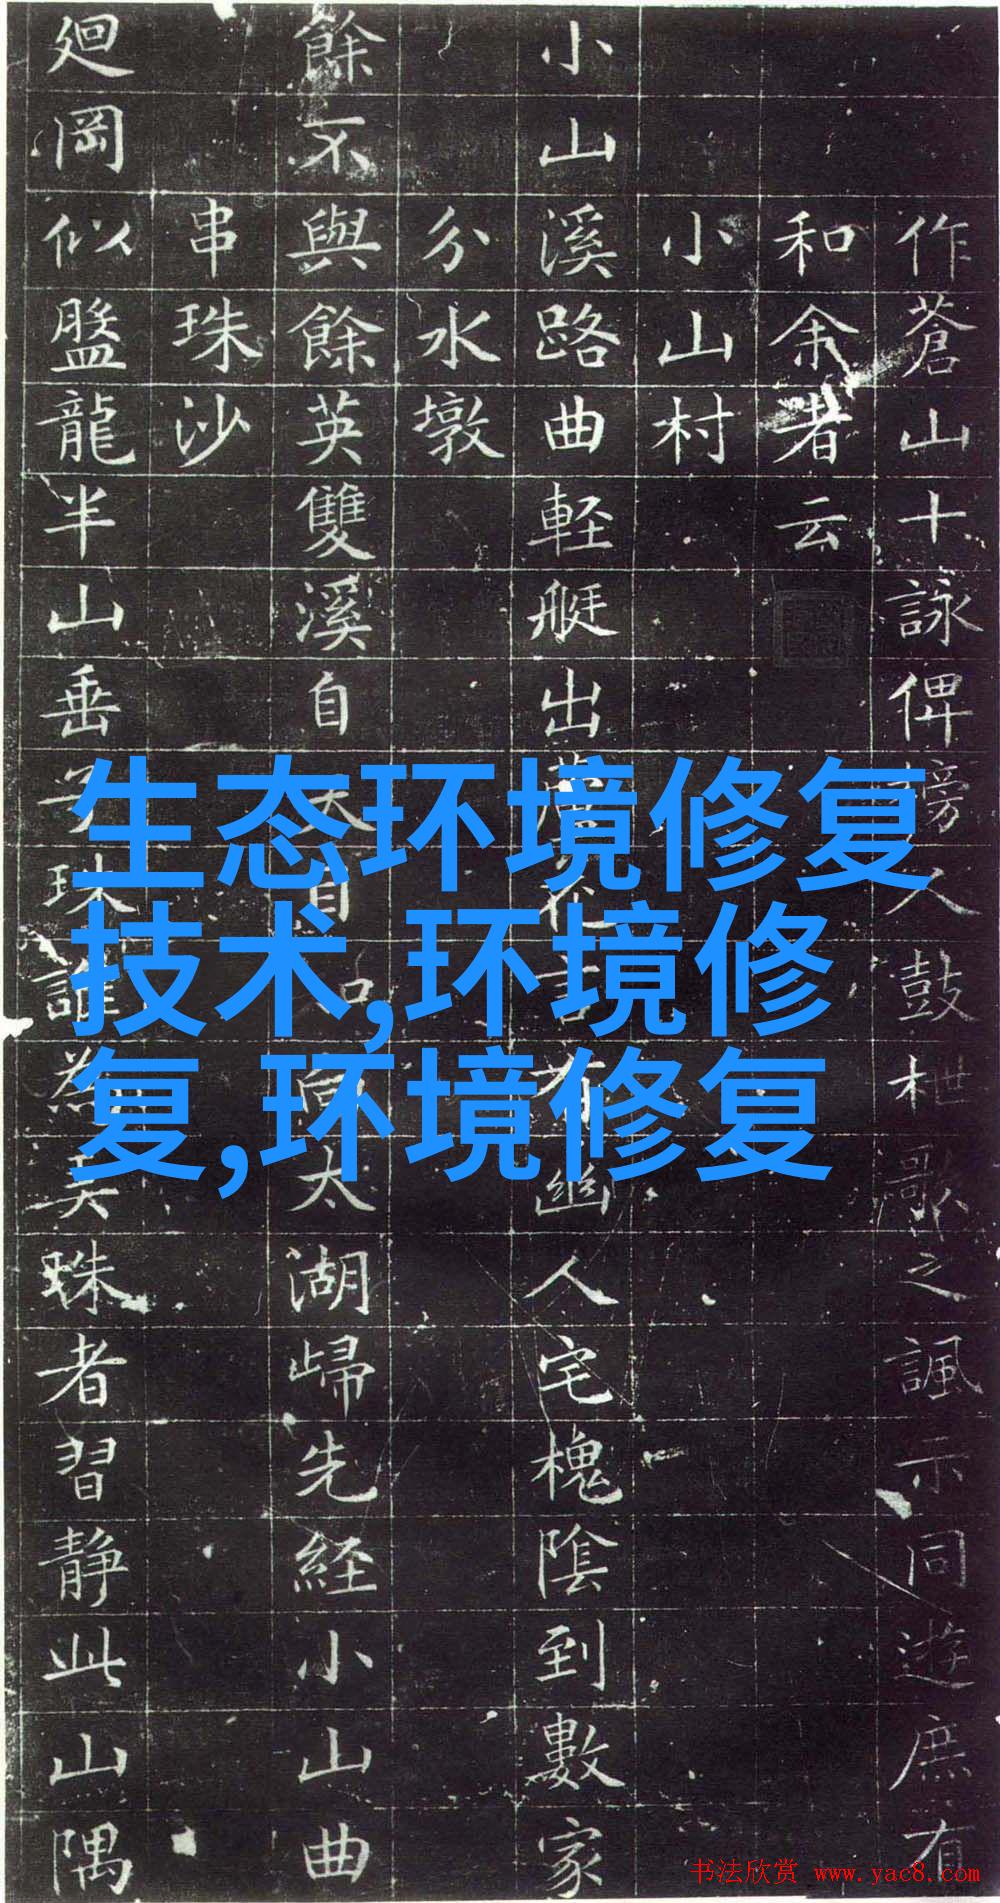 作蒼山十詠俾榜人鼓枻歌之諷示同遊庶有
和余者云
小山村
小山溪路曲軽艇出花言有幽人宅槐陰到數家
分水墩
餘不與餘英雙溪自天目向太湖歸先経小山曲
串珠沙
廻岡似盤龍半山垂珠誰為弄珠者習静此山隅
生态环境修复
技术,环境修
复,环境修复
书法欣赏 www.yac8.com